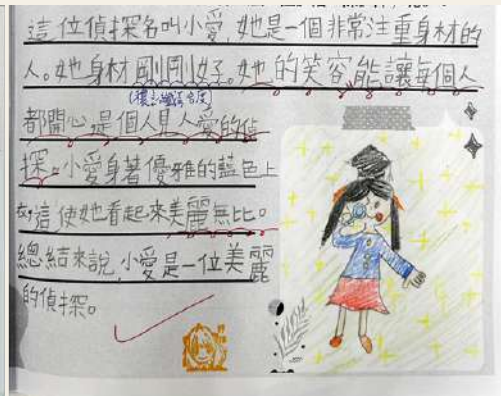 這位偵探名叫小愛,她是一個非常注重身材的
人。她身材剛剛好。她的笑容能讓每個人
(穠纖合度)
都開心是個人見人愛的偵
探。小愛身著優雅的藍色上
衣,這使她看起來美麗無比。
總結來說,小愛是一位美麗
的偵探。